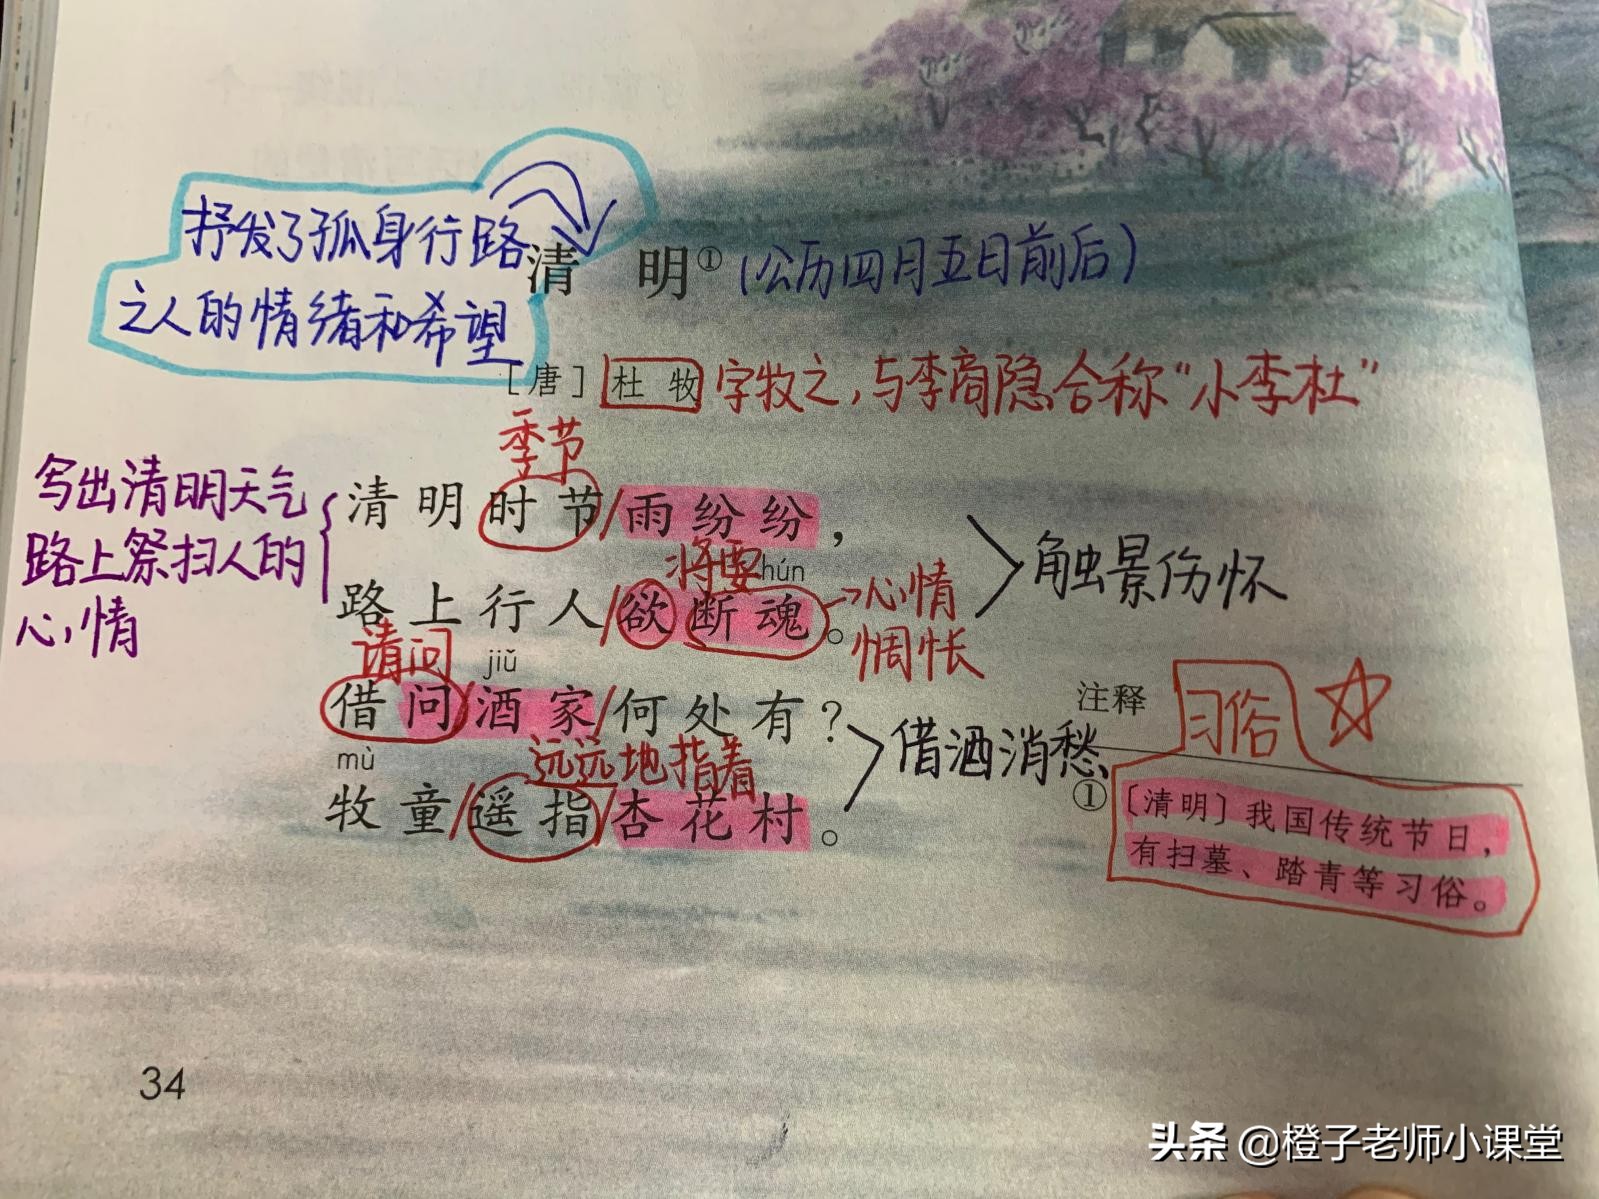 抒发了孤身行路
之人的情绪和希望
清 明① (公历四月五日前后)
[唐] 杜 牧 字牧之,与李商隐合称“小李杜”
季节
写出清明天气
路上祭扫人的
心情
清明时节/雨纷纷,
将要 hún
路上行人/欲断魂。
心情
惆怅
触景伤怀
请问 jiǔ
借问/酒家/何处有?
远远地指着
mù
牧童/遥指/杏花村。
借酒消愁
注释
习俗
① [清明] 我国传统节日,
有扫墓、踏青等习俗。
34
头条 @橙子老师小课堂